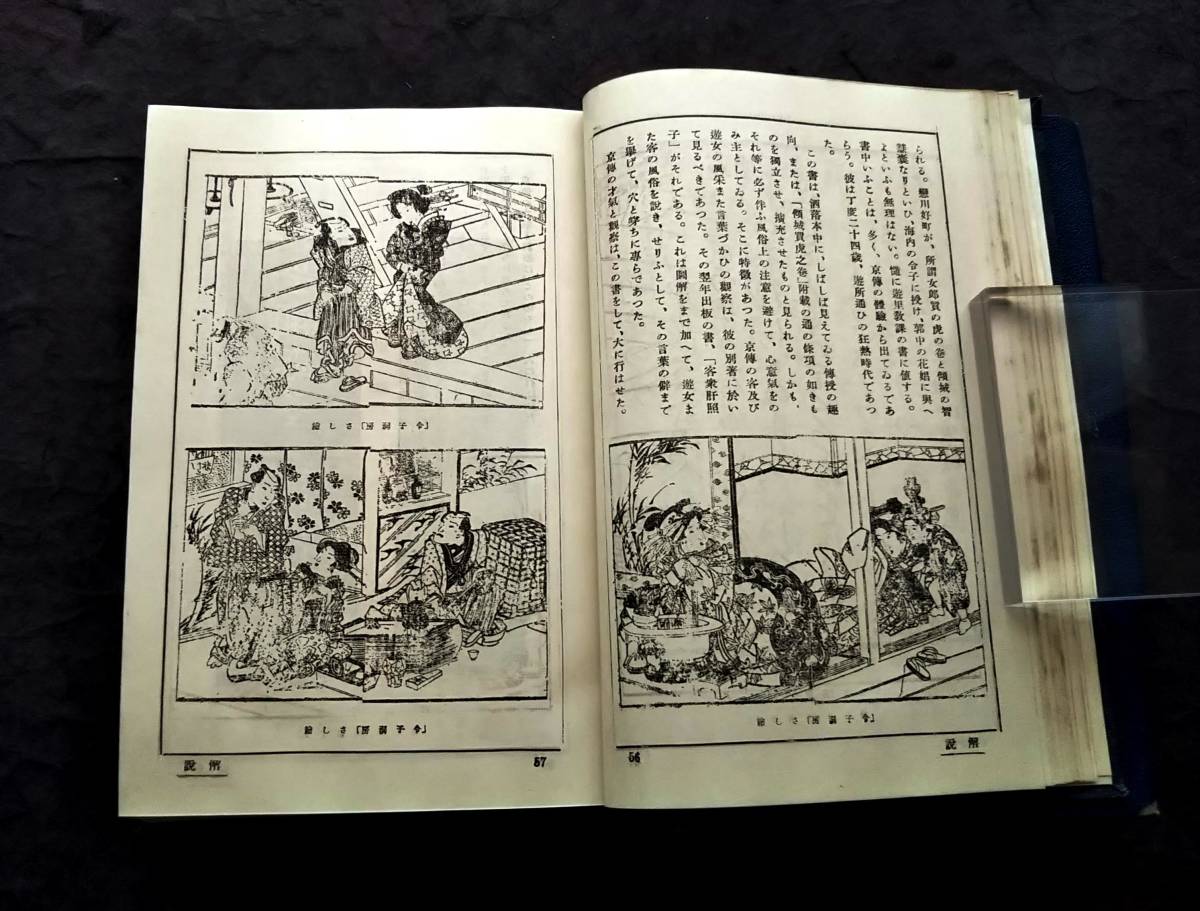 られる。戀川好町が、所謂女郎買の虎の卷と傾城の智
慧嚢なりといひ、海内の令子に授け、郭中の花娼に與へ
よといふも無理はない。慥に遊里敎課の書に値する。
書中いふことは、多く、京傳の體驗から出てゐるであ
らう。彼は丁度二十四歲、遊所通ひの狂熱時代であつ
た。
この書は、洒落本中に、しばしば見えてゐる傳授の趣
向、または、「傾城買虎之卷」附載の通の條項の如きも
のを獨立させ、擴充させたものと見られる。しかも、
それ等に必ず伴ふ風俗上の注意を避けて、心意氣をの
み主としてゐる。そこに特徵があつた。京傳の客及び
遊女の風采また言葉づかひの觀察は、彼の別著に於い
て見るべきであつた。その翌年出板の書、「客衆肝照
子」がそれである。これは圖解をまで加へて、遊女ま
た客の風俗を說き、せりふとして、その言葉の僻まで
を擧げて、穴と穿ちに專らであつた。
京傳の才氣と觀察は、この書をして、大に行はせた。
繪しさ「房洞子令」
解說
56
繪しさ「房洞子令」
繪しさ「房洞子令」
57
說解